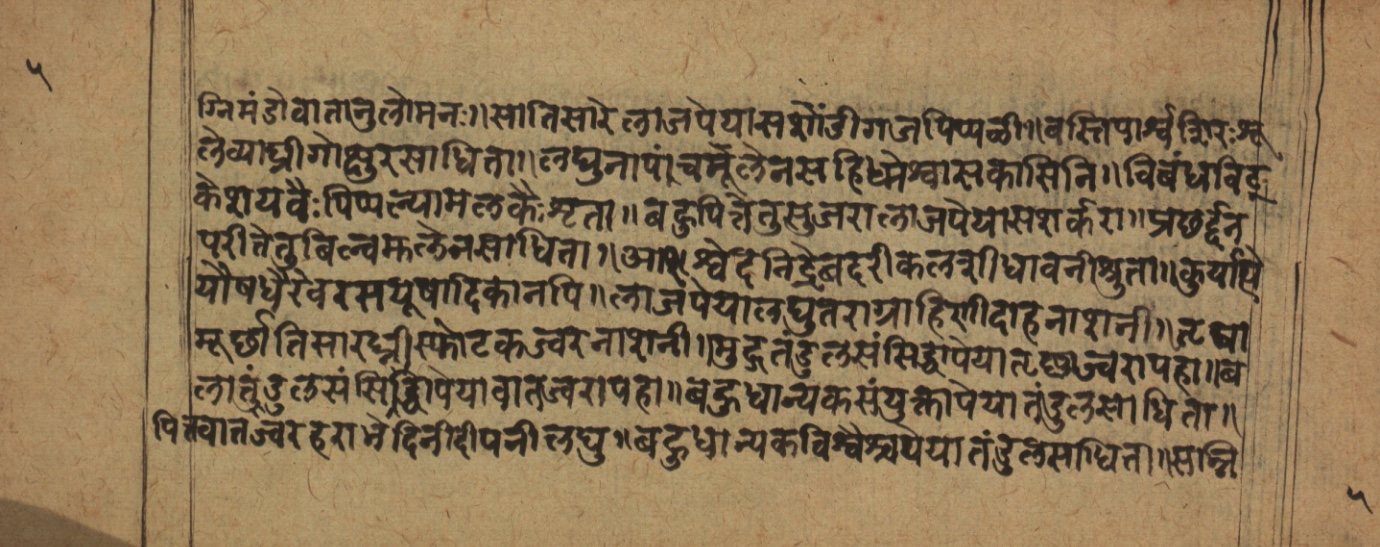 ५
ग्निमंडोवातानुलोमनः॥सातिसारेलाजपेयासशौंडीगजपिप्पळी॥बस्तिपार्श्वशिरःशू
लेव्याघ्रीगोक्षुरसाधिता॥लघुनापंचमूलेनसहिध्मेश्वासकासिनि॥विबंधविट्
केशयवैःपिप्पल्यामलकैःशृता॥बहुपित्तेतुसुजरालाजपेयासशर्करा॥प्रछर्द्दन
परीतेतुबिल्वमूलेनसाधिता॥अस्वेदनिद्रेबदरीकलशीधावनीश्रुता॥कुर्यात्पे
यौषधैरेवरसयूषादिकानपि॥लाजपेयालघुतराग्राहिणीदाहनाशनी॥तृषा
मूर्छातिसारघ्नीस्फोटकज्वरनाशनी॥मुद्गतंडुलसंसिद्धापेयातृष्णाज्वरापहा॥ब
लातंडुलसंसिद्धापेयावातज्वरापहा॥बहुधान्यकसंयुक्तापेयातंडुलसाधिता॥
पित्तवातज्वरहराभेदिनीदीपनीलघु॥बहुधान्यकविश्वैश्चपेयातंडुलसाधिता॥सन्नि
५